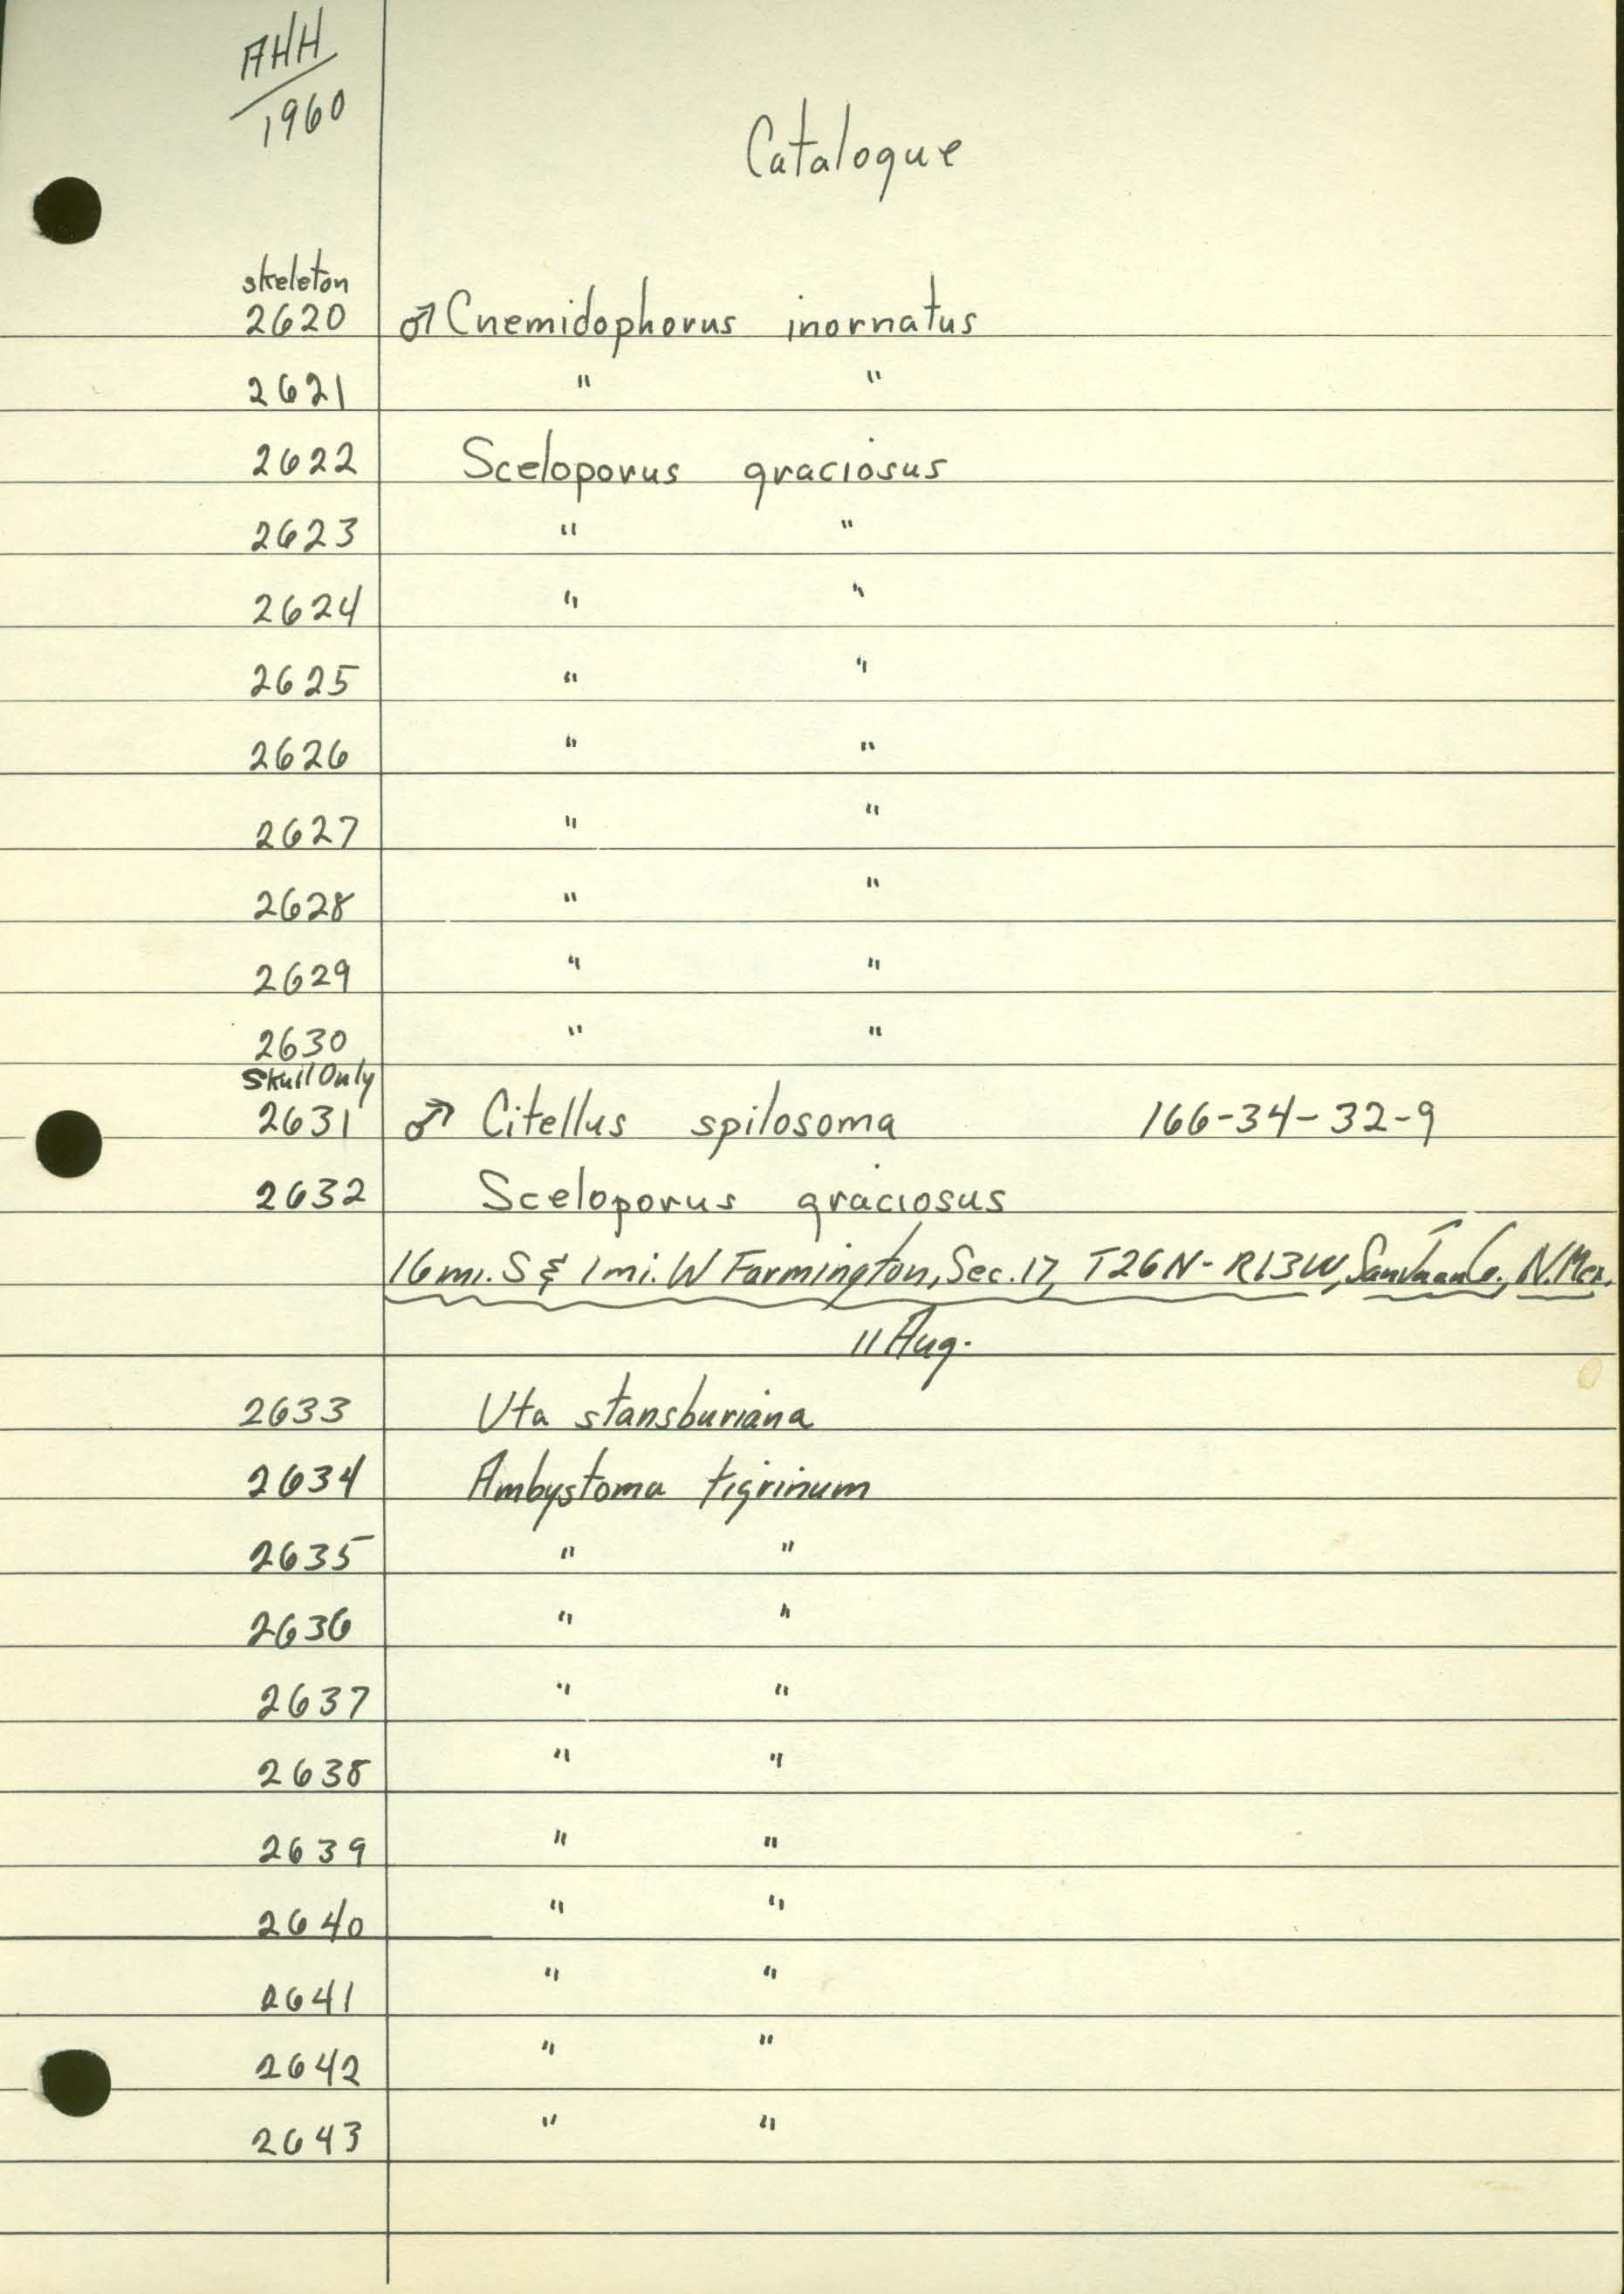 AHH
1960
Catalogue
skeleton
2620 ♂ Cnemidophorus inornatus
2621 " "
2622 Sceloporus graciosus
2623 " "
2624 " "
2625 " "
2626 " "
2627 " "
2628 " "
2629 " "
2630 " "
Skull Only
2631 ♂ Citellus spilosoma 166-34-32-9
2632 Sceloporus graciosus
16 mi. S & 1 mi. W Farmington, Sec. 17, T26N- R13W, San Juan Co., N. Mex.
11 Aug.
2633 Uta stansburiana
2634 Ambystoma tigrinum
2635 " "
2636 " "
2637 " "
2638 " "
2639 " "
2640 " "
2641 " "
2642 " "
2643 " "